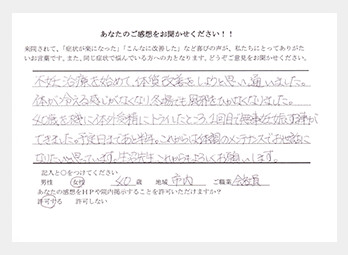 あなたのご感想をお聞かせください！！
来院されて、「症状が楽になった」「こんなに改善した」など喜びの声が、私たちにとってありがた
いお言葉です。また、同じ症状で悩んでいる方への力となります。どうぞご意見をお聞かせください。
不妊治療を始めて、体質改善をしようと思い通いました。
体が冷える感じがなくなり冬場でも風邪をひかなくなりました。
40歳を機に体外受精にトライしたところ、2回目で無事妊娠する事が
できました。予定日まであと半年。これからは体調のメンテナンスでお世話に
なりたいと思っています。先生これからもよろしくお願いします。
記入と○をつけてください
男性 女性 40 歳 地域 市内 ご職業 会社員
あなたの感想をHPや院内掲示することを許可いただけますか？
許可する 許可しない